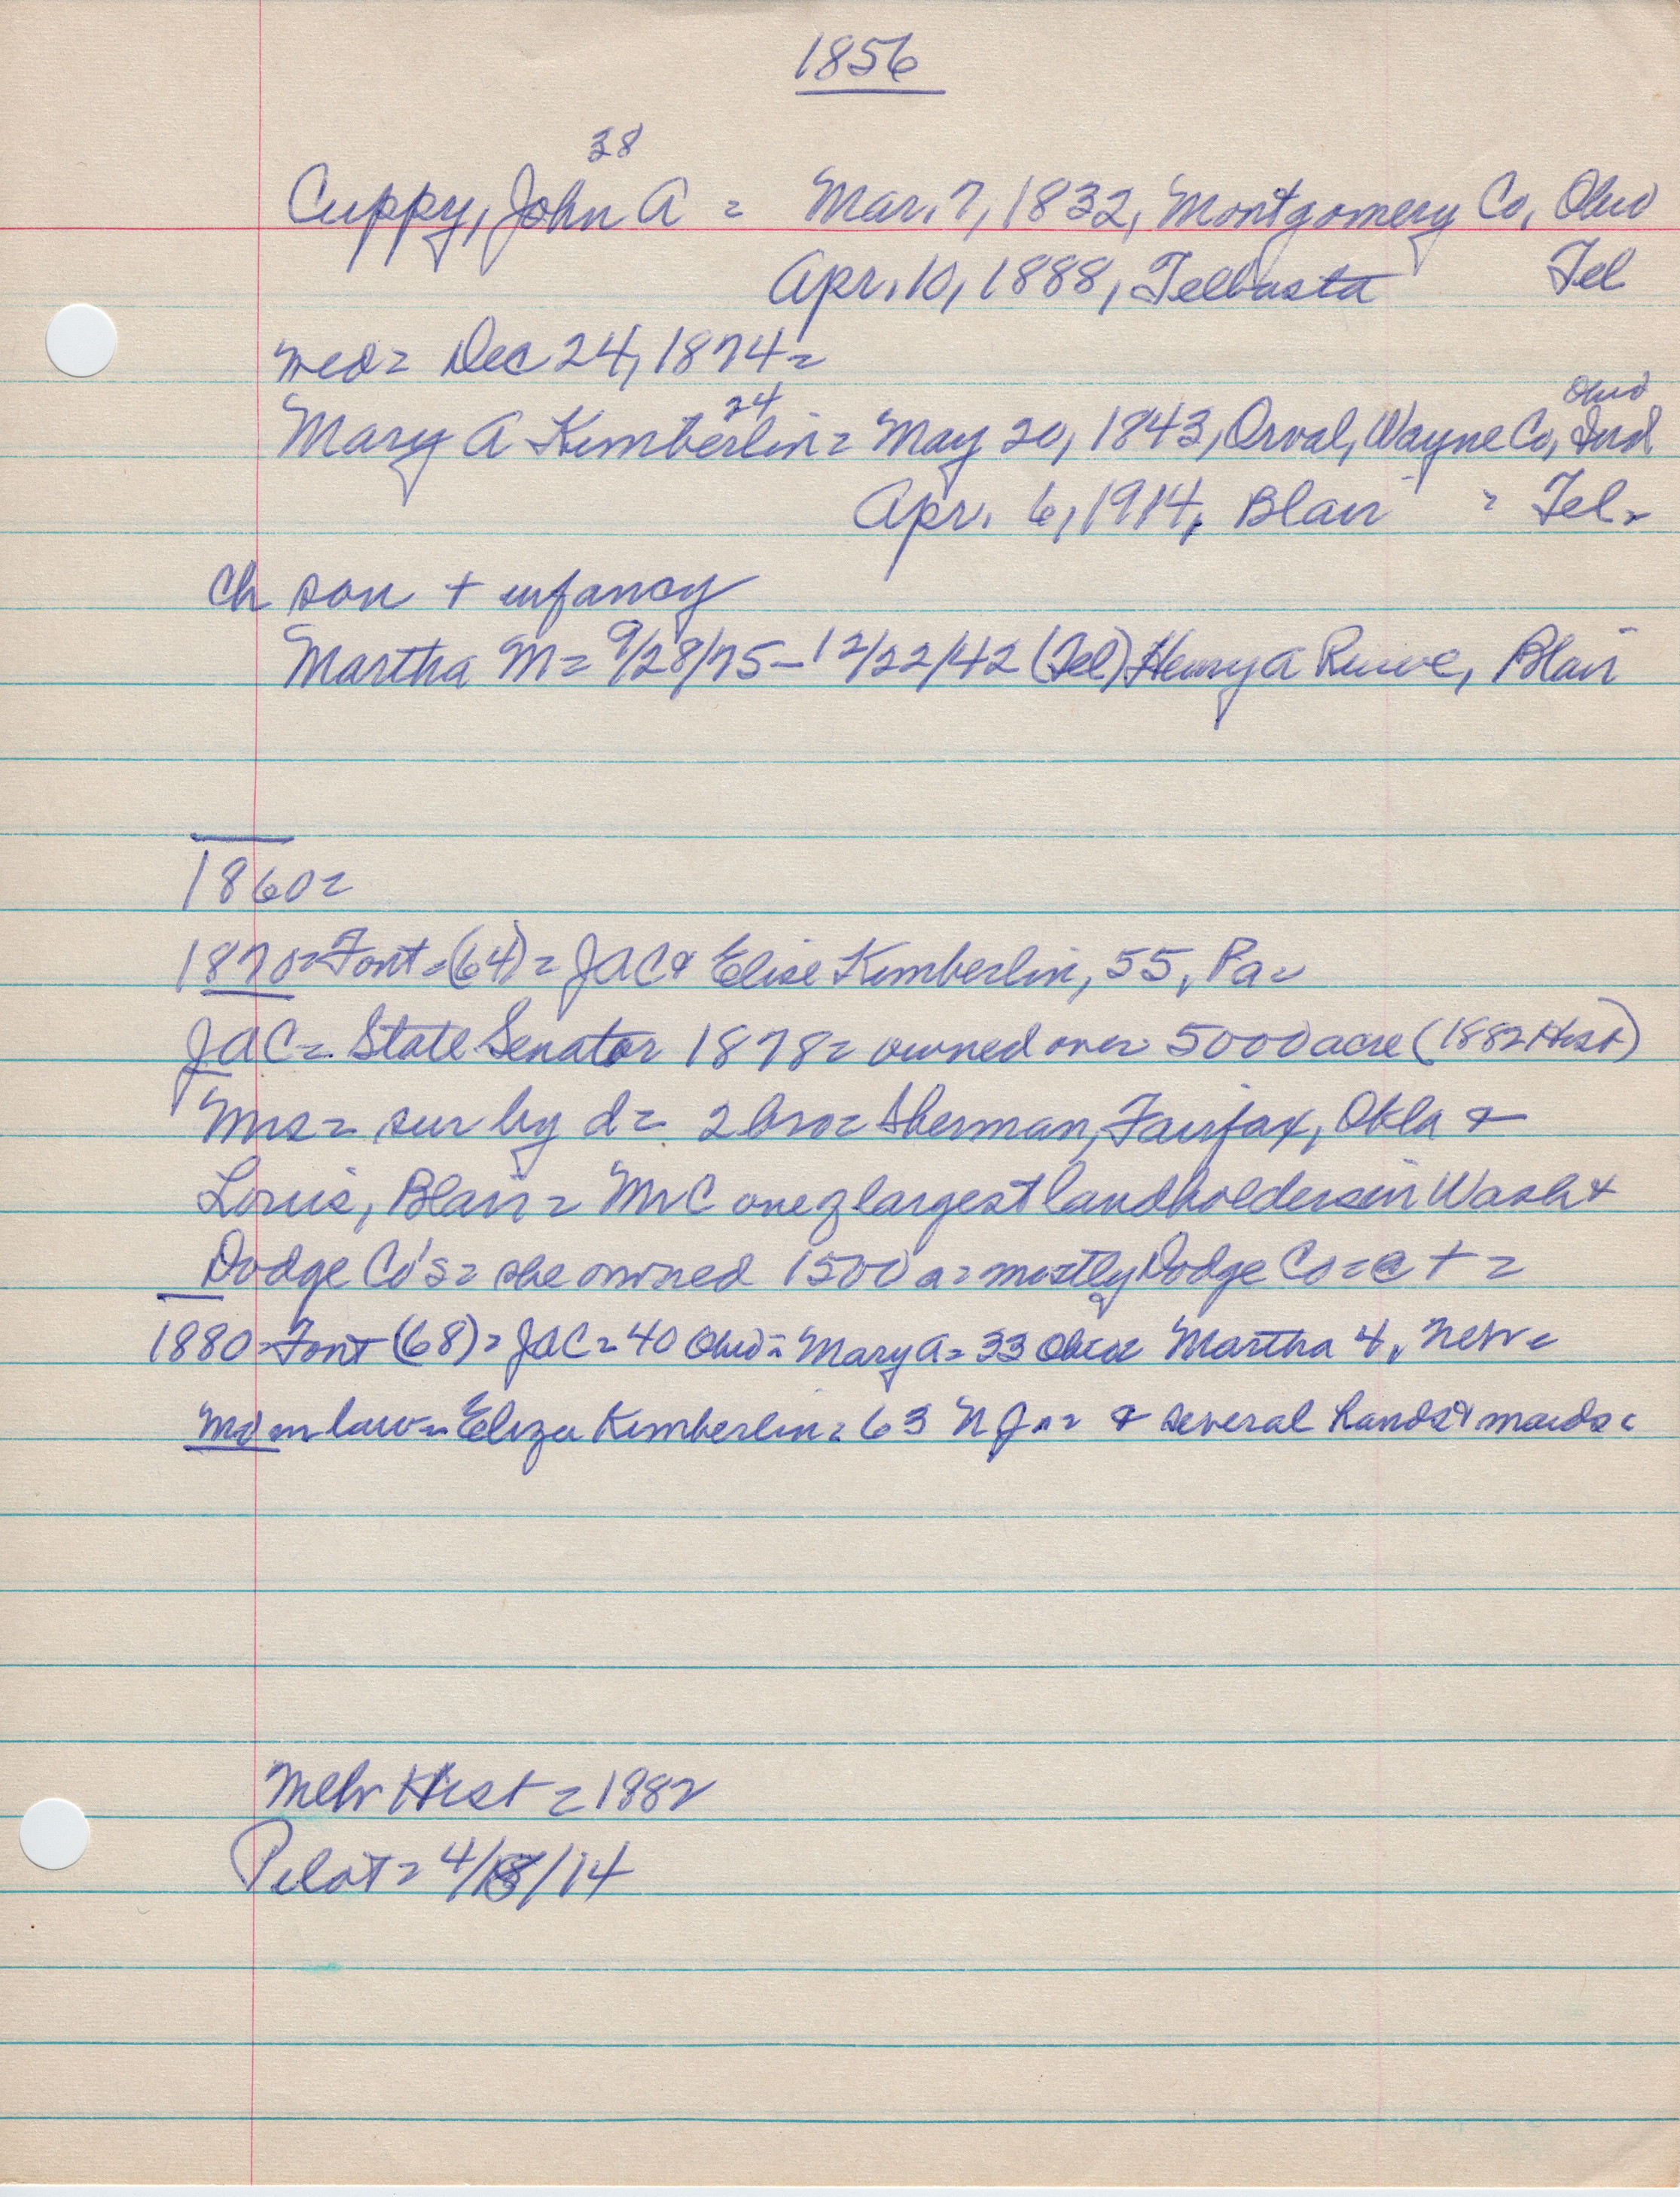 1856
38
Cuppy, John A = Mar. 7, 1832, Montgomery Co, Ohio
Apr. 10, 1888, Telbasta Tel
med = Dec 24, 1874 =
24 Ohio
Mary A Kimberlin = May 20, 1843, Orval, Wayne Co, Ind
Apr. 6, 1914, Blair = Tel =
Ch son + infancy
Martha M = 9/28/75 - 12/22/42 (Tel) Henry A Ruwe, Blair
1860 =
1870 = Font = (64) = JAC & Elise Kimberlin, 55, Pa =
JAC = State Senator 1878 = owned over 5000 acre (1882 Hist)
Mrs = sur by d = 2 bro = Sherman, Fairfax, Okla &
Louis, Blair = Mr C one of largest landholders in Wash &
Dodge Co's = she owned 1500 a = mostly Dodge Co = @ + =
1880 = Font (68) = JAC = 40 Ohio = Mary A = 33 Ohio = Martha 4, Neb =
Mo in law = Eliza Kimberlin = 63 NJ = & several hands & maids =
Neb Hist = 1982
Pilot = 4/15/14